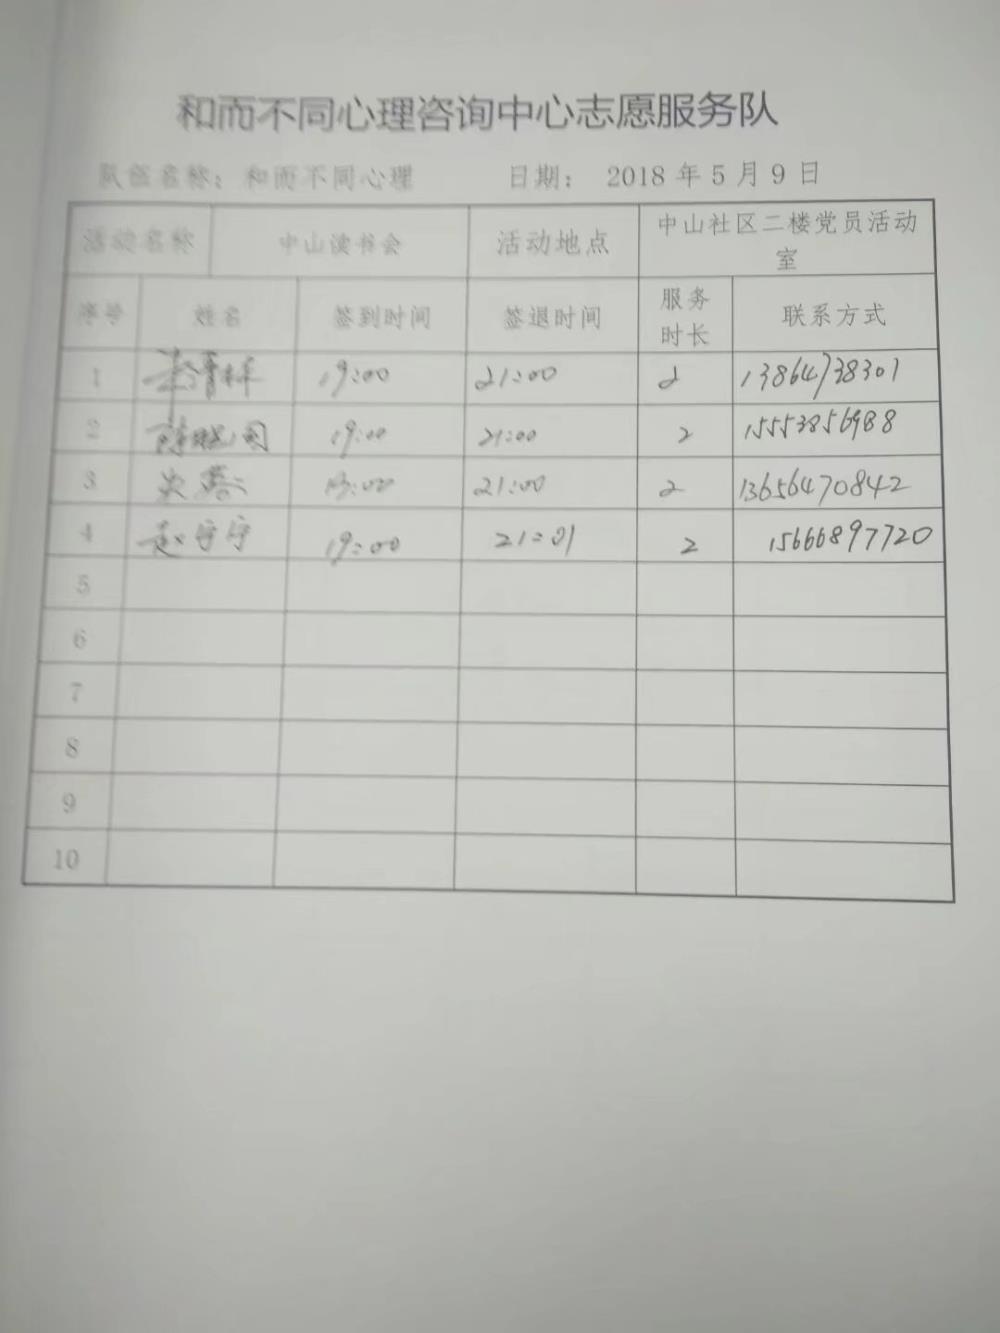 和而不同心理咨询中心志愿服务队
队伍名称：和而不同心理 日期： 2018 年 5 月 9 日
活动名称 中山读书会 活动地点 中山社区二楼党员活动室
序号 姓名 签到时间 签退时间 服务时长 联系方式
1 19:00 21:00 2 13864738301
2 19:00 21:00 2 15553856988
3 21:00 2 13656470842
4 赵宁宁 19:00 21:01 2 15666897720
5
6
7
8
9
10